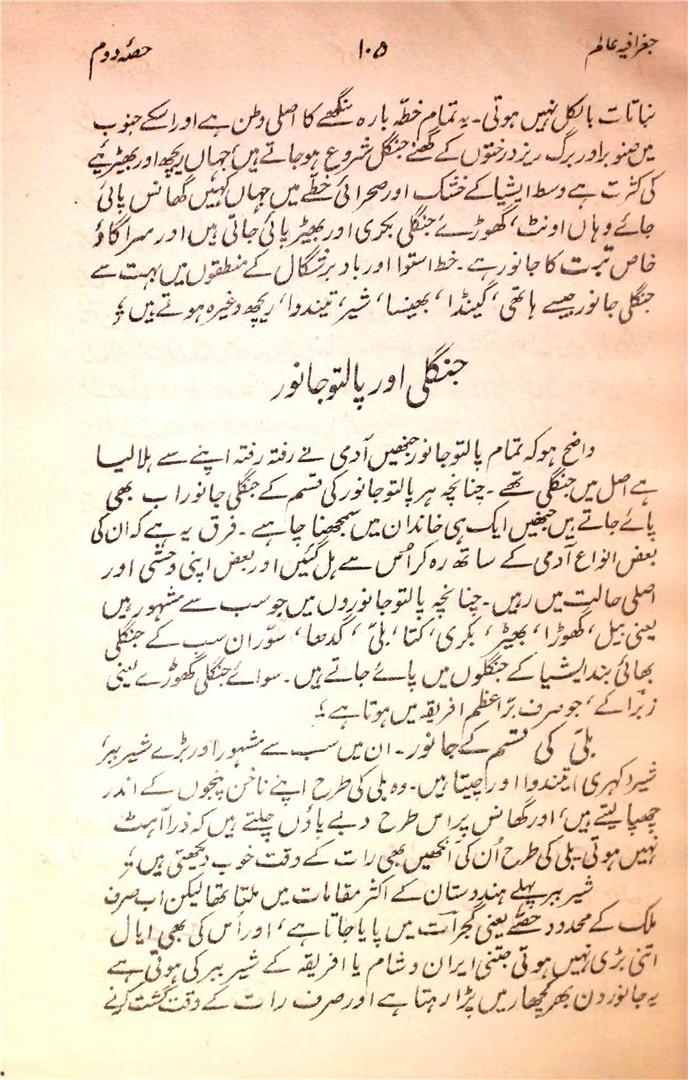 جغرافیہ عالم ۱۰۵ حصۂ دوم
نباتات بالکل نہیں ہوتی۔ یہ تمام خطّہ بارہ سنگھے کا اصلی وطن ہے اور اسکے جنوب
میں صنوبر اور برگ ریز درختوں کے گھنے جنگل شروع ہو جاتے ہیں جہاں ریچھ اور بھیڑیے
کی کثرت ہے وسط ایشیا کے خشک اور صحرائی خطّے میں جہاں کہیں گھانس پائی
جائے وہاں اونٹ، گھوڑے جنگلی بکری اور بھیڑ پائی جاتی ہیں اور سراگاؤ
خاص تبت کا جانور ہے۔ خط استوا اور باد برشگال کے منطقوں میں بہت سے
جنگلی جانور جیسے ہاتھی، گینڈا، بھینسا، شیر، تیندوا، ریچھ وغیرہ ہوتے ہیں؛
جنگلی اور پالتو جانور
واضح ہو کہ تمام پالتو جانور جنھیں آدمی نے رفتہ رفتہ اپنے سے ہلالیا
ہے اصل میں جنگلی تھے۔ چنانچہ ہر پالتو جانور کی قسم کے جنگلی جانور اب بھی
پائے جاتے ہیں جنھیں ایک ہی خاندان میں سمجھنا چاہیے۔ فرق یہ ہے کہ ان کی
بعض انواع آدمی کے ساتھ رہ کر اُس سے ہل گئیں اور بعض اپنی وحشی اور
اصلی حالت میں رہیں۔ چنانچہ پالتو جانوروں میں جو سب سے مشہور ہیں
یعنی بیل، گھوڑا، بھیڑ، بکری، کتا، بلّی، گدھا، سوّر ان سب کے جنگلی
بھائی بند ایشیا کے جنگلوں میں پائے جاتے ہیں۔ سوائے جنگلی گھوڑے یعنی
زبرا کے، جو صرف برّ اعظم افریقہ میں ہوتا ہے؛
بلّی کی قسم کے جانور۔ ان میں سب سے مشہور اور بڑے شیر ببر،
شیر (کہری) تیندوا اور چیتا ہیں۔ وہ بلی کی طرح اپنے ناخن پنجوں کے اندر
چھپا لیتے ہیں، اور گھانس پر اس طرح دبے پاؤں چلتے ہیں کہ ذرا آہٹ
نہیں ہوتی۔ بلی کی طرح اُن کی آنکھیں بھی رات کے وقت خوب دیکھتی ہیں؛
شیر ببر پہلے ہندوستان کے اکثر مقامات میں ملتا تھا لیکن اب صرف
ملک کے محدود حصّے یعنی گجرات میں پایا جاتا ہے، اور اُس کی بھی ایال
اتنی بڑی نہیں ہوتی جتنی ایران و شام یا افریقہ کے شیر ببر کی ہوتی ہے
یہ جانور دن بھر کچھار میں پڑا رہتا ہے اور صرف رات کے وقت گشت کرنے